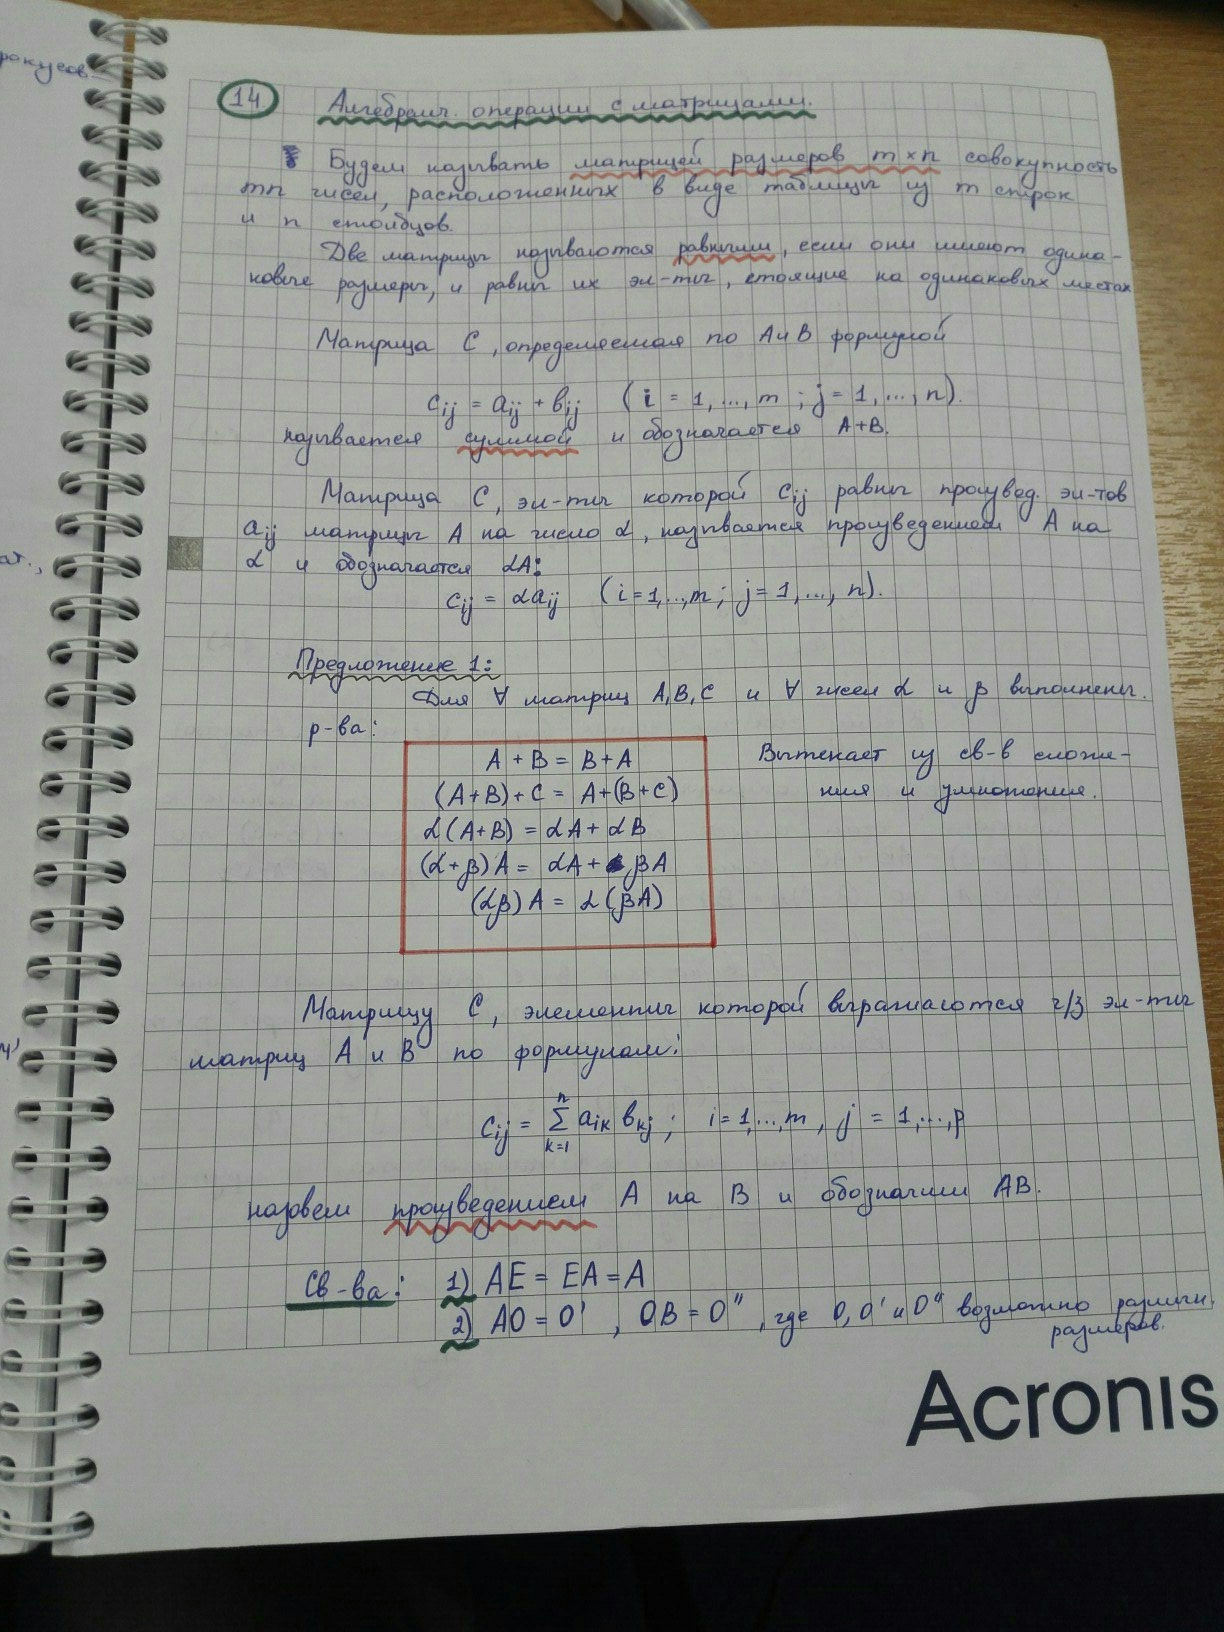 рокусов
14 Алгебраич. операции с матрицами.
Будем называть матрицей размеров m×n совокупность
mn чисел, расположенных в виде таблицы из m строк
и n столбцов.
Две матрицы называются равными, если они имеют одина-
ковые размеры, и равны их эл-ты, стоящие на одинаковых местах
Матрица C, определяемая по A и B формулой
cij = aij + bij (i = 1,...,m ; j = 1,..., n).
называется суммой и обозначается A+B.
Матрица C, эл-ты которой cij равны произвед. эл-тов
aij матрицы A на число α, называется произведением A на
α и обозначается αA:
cij = αaij (i=1,...,m ; j=1,..., n).
Предложение 1:
Для ∀ матриц A,B,C и ∀ чисел α и β выполнены.
р-ва:
A + B = B + A
(A+B)+C = A+(B+C)
α(A+B) = αA + αB
(α+β)A = αA + βA
(αβ)A = α(βA)
Вытекает из св-в сложе-
ния и умножения.
Матрицу C, элементы которой выражаются ч/з эл-ты
матриц A и B по формулам:
cij = ∑ⁿₖ₌₁ aik bkj ; i=1,...,m , j = 1,...,p
назовем произведением A на B и обозначим AB.
Св-ва: 1) AE = EA = A
2) AO = O' , OB = O" , где O, O' и O" возможно различн.
размеров.
Acronis